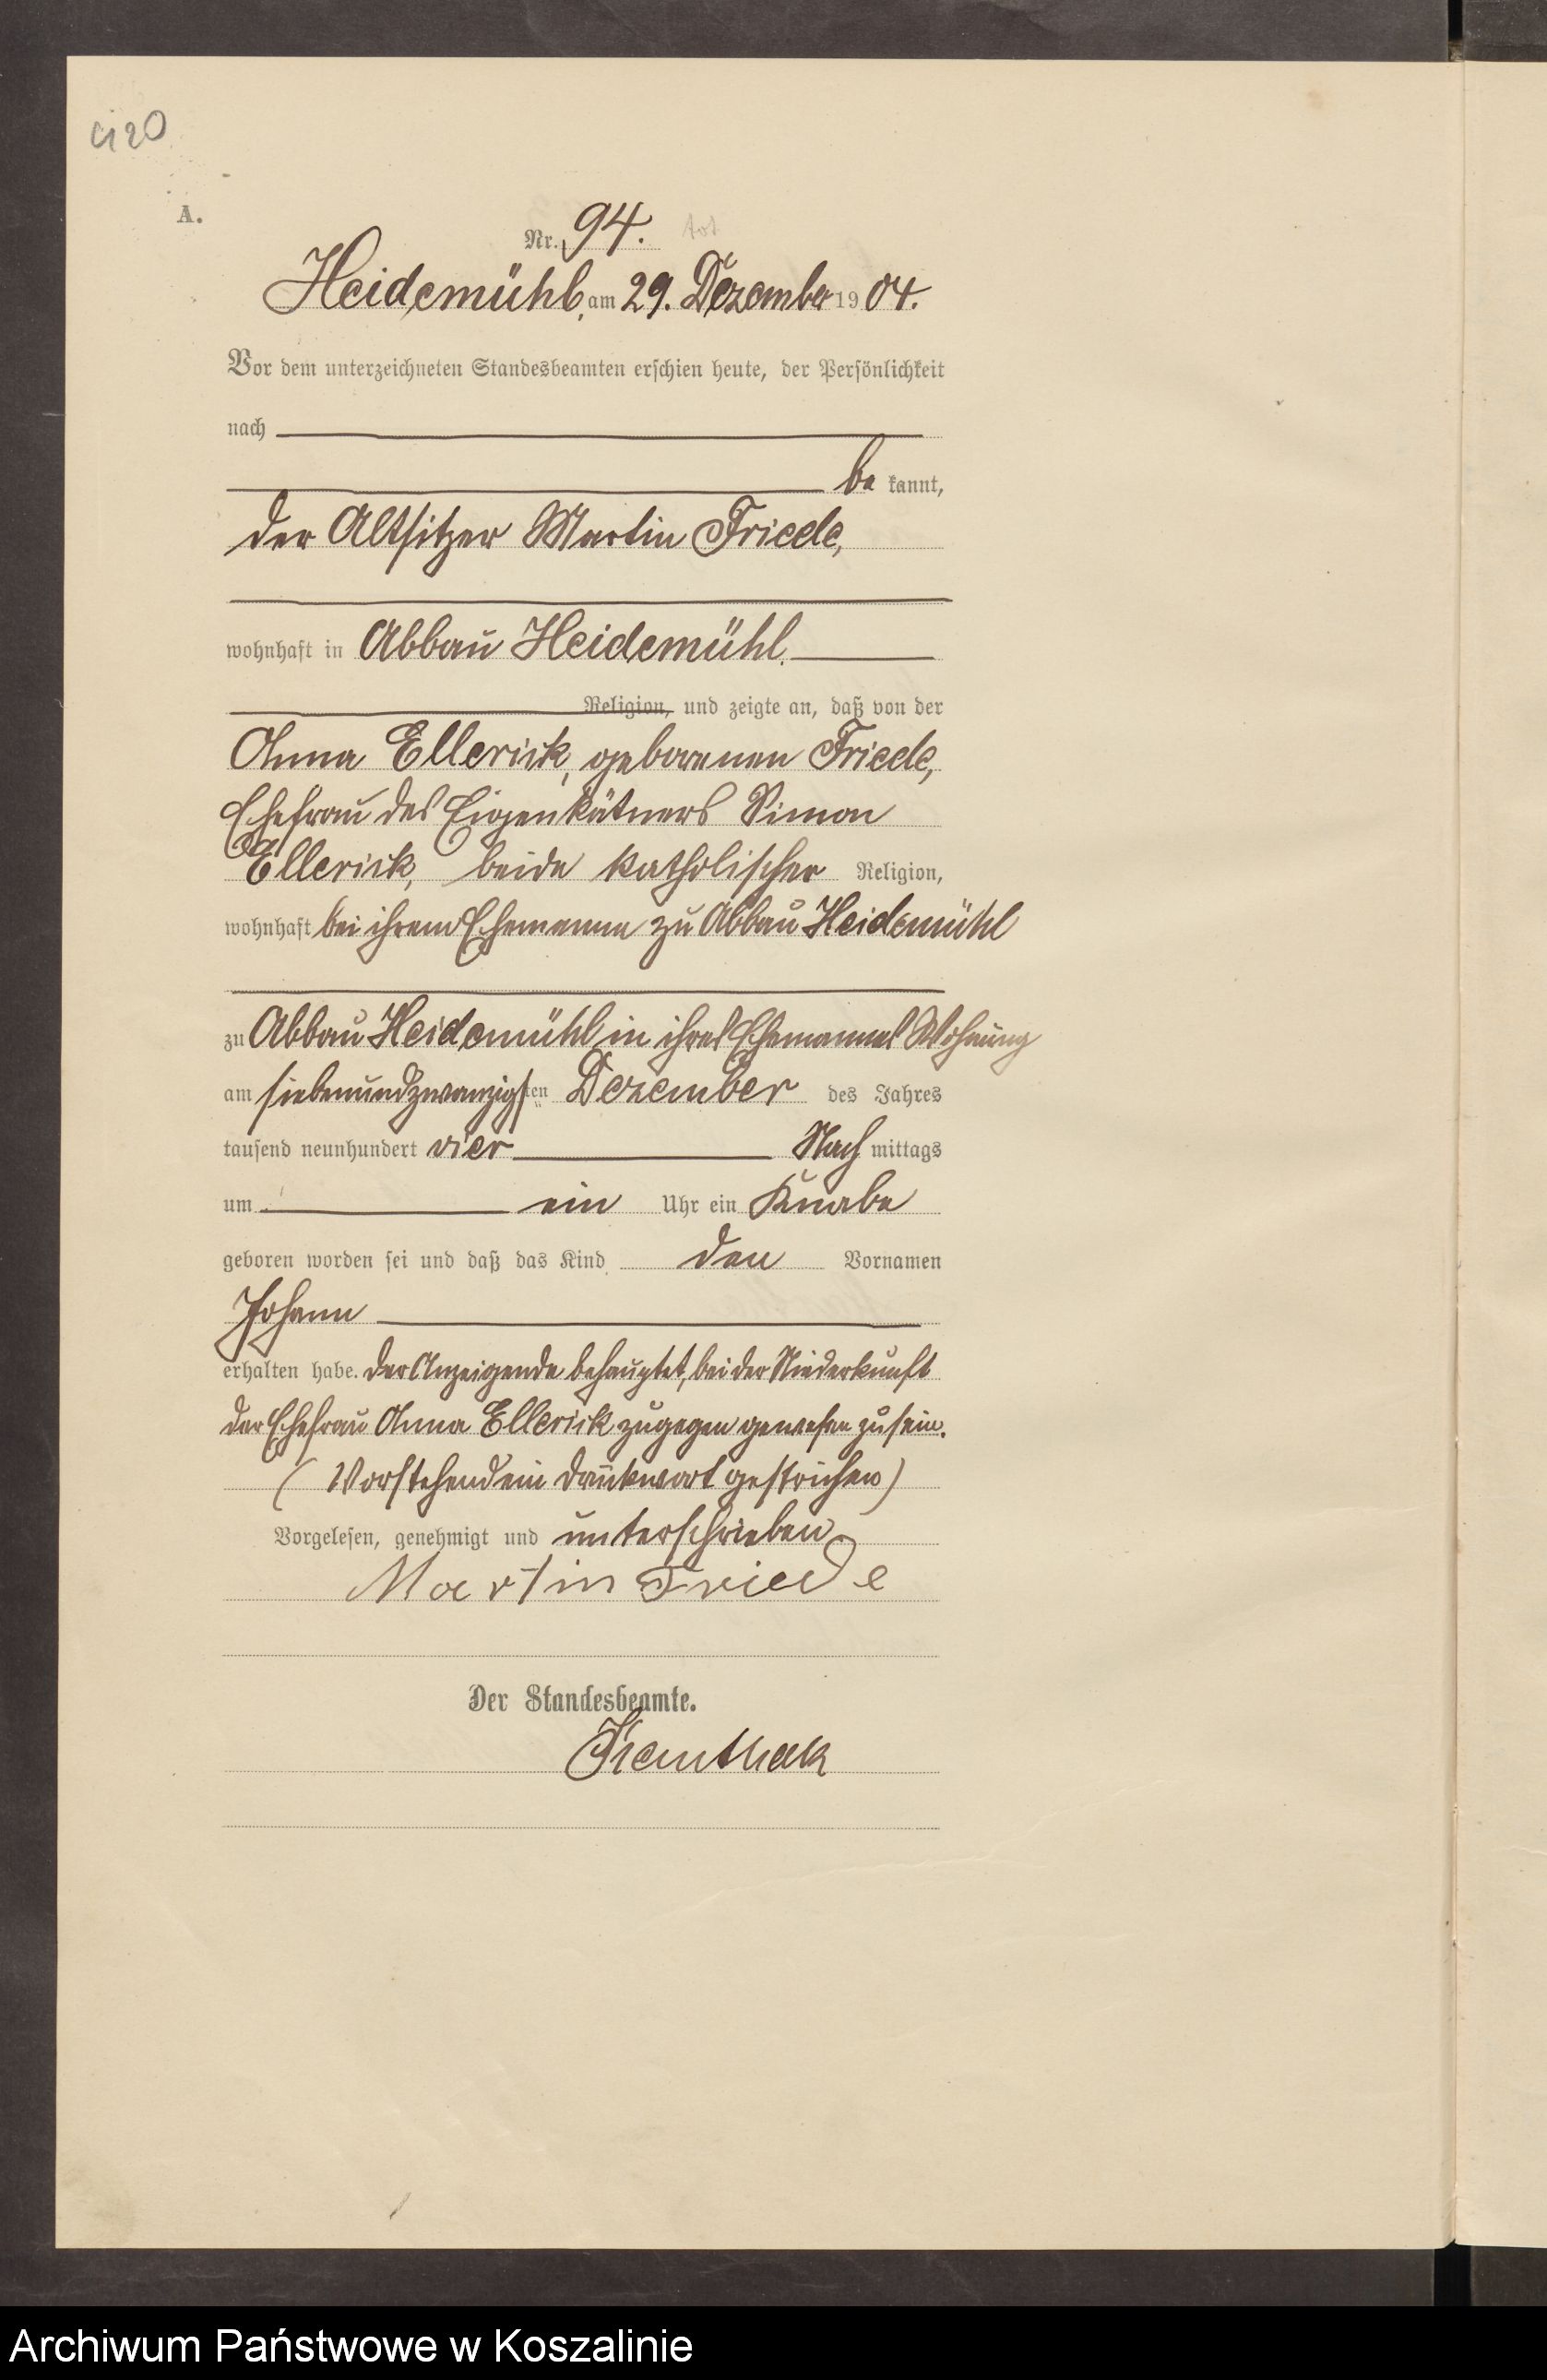 A.
Nr. 94. tot
Heidemühl, am 29. Dezember 1904.
Vor dem unterzeichneten Standesbeamten erschien heute, der Persönlichkeit
nach
be kannt,
der Altsitzer Martin Friede,
wohnhaft in Abbau Heidemühl,
Religion, und zeigte an, daß von der
Anna Ellerick, geborenen Friede,
Ehefrau des Eigenkätners Simon
Ellerick, beide katholischer Religion,
wohnhaft bei ihrem Ehemanne zu Abbau Heidemühl
zu Abbau Heidemühl in ihres Ehemannes Wohnung
am siebenundzwanzigsten Dezember des Jahres
tausend neunhundert vier Nach mittags
um ein Uhr ein Knabe
geboren worden sei und daß das Kind den Vornamen
Johann
erhalten habe. Der Anzeigende behauptet, bei der Niederkunft
der Ehefrau Anna Ellerick zugegen gewesen zu sein.
(Vorstehend ein Druckwort gestrichen)
Vorgelesen, genehmigt und unterschrieben
Martin Friede
Der Standesbeamte.
Archiwum Państwowe w Koszalinie